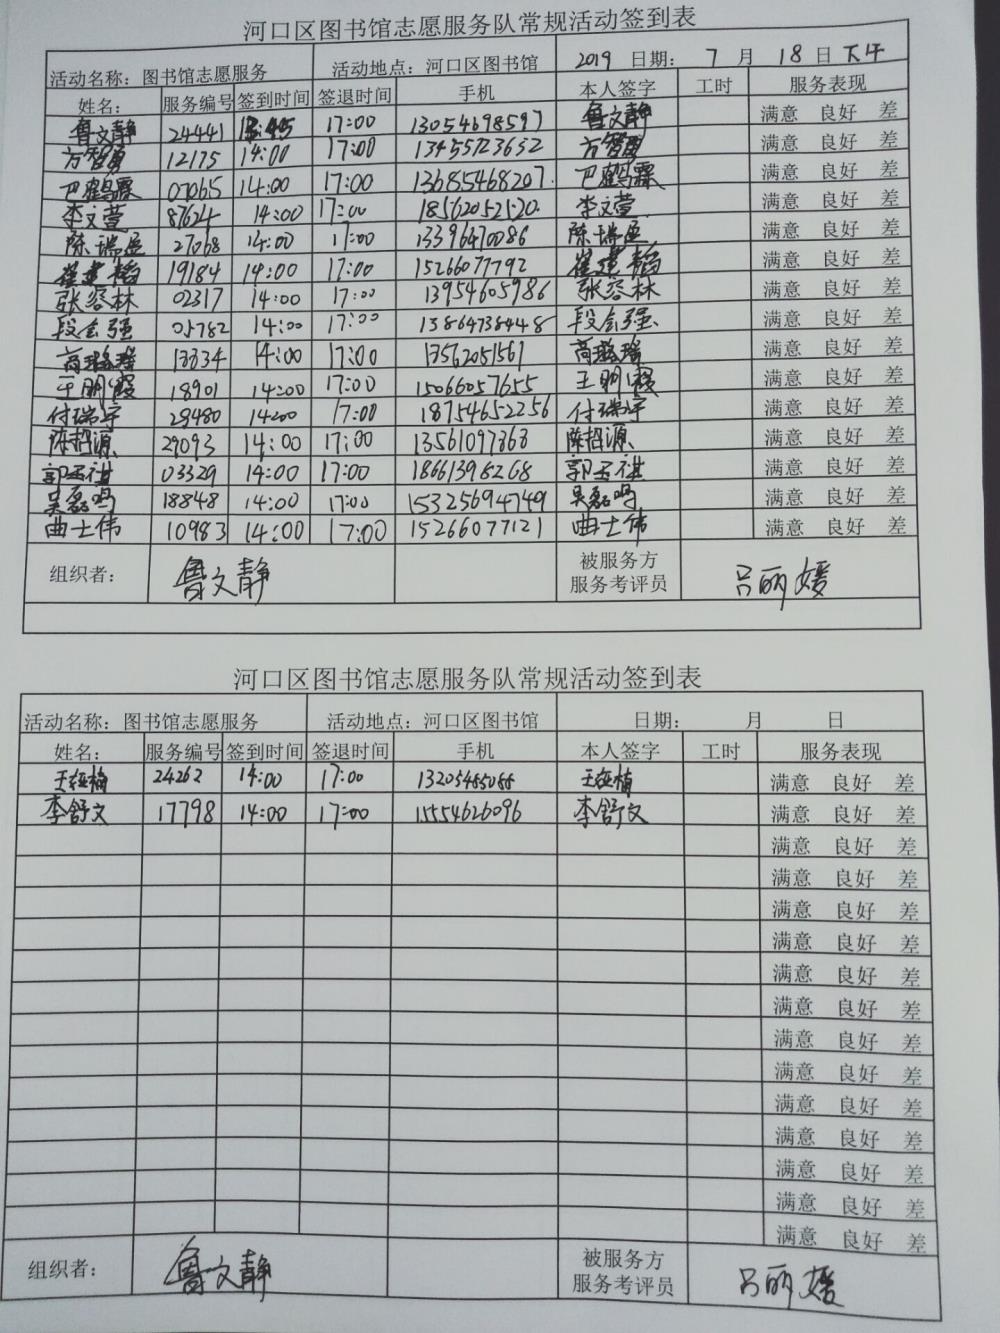 河口区图书馆志愿服务队常规活动签到表
活动名称：图书馆志愿服务 活动地点：河口区图书馆 2019 日期： 7 月 18 日 下午
姓名： 服务编号 签到时间 签退时间 手机 本人签字 工时 服务表现
鲁文静 24441 13:45 17:00 13054698597 鲁文静 满意 良好 差
方智勇 12175 14:00 17:00 13455723632 方智勇 满意 良好 差
巴鹤霖 07065 14:00 17:00 13685468207 巴鹤霖 满意 良好 差
李文萱 87624 14:00 17:00 李文萱 满意 良好 差
27068 14:00 17:00 13396470086 满意 良好 差
崔建韬 19184 14:00 17:00 15266077792 崔建韬 满意 良好 差
张容林 02317 14:00 17:00 13954605986 张容林 满意 良好 差
段会强 05782 14:00 17:00 15864738448 段会强 满意 良好 差
高璐瑶 13834 14:00 17:00 13562051561 高璐瑶 满意 良好 差
王明霞 18901 14:00 17:00 15066057655 王明霞 满意 良好 差
付瑞宇 29480 14:00 17:00 18754652256 付瑞宇 满意 良好 差
陈招源 29093 14:00 17:00 13561097368 陈招源 满意 良好 差
03329 14:00 17:00 18661398268 满意 良好 差
吴磊鸣 18848 14:00 17:00 15325694749 吴磊鸣 满意 良好 差
曲士伟 10983 14:00 17:00 15266077121 曲士伟 满意 良好 差
组织者： 鲁文静 被服务方 吕丽媛
服务考评员
河口区图书馆志愿服务队常规活动签到表
活动名称：图书馆志愿服务 活动地点：河口区图书馆 日期： 月 日
姓名： 服务编号 签到时间 签退时间 手机 本人签字 工时 服务表现
24262 14:00 17:00 13205485088 满意 良好 差
李舒文 17798 14:00 17:00 15554626096 李舒文 满意 良好 差
满意 良好 差
满意 良好 差
满意 良好 差
满意 良好 差
满意 良好 差
满意 良好 差
满意 良好 差
满意 良好 差
满意 良好 差
满意 良好 差
满意 良好 差
满意 良好 差
满意 良好 差
组织者： 鲁文静 被服务方 吕丽媛
服务考评员